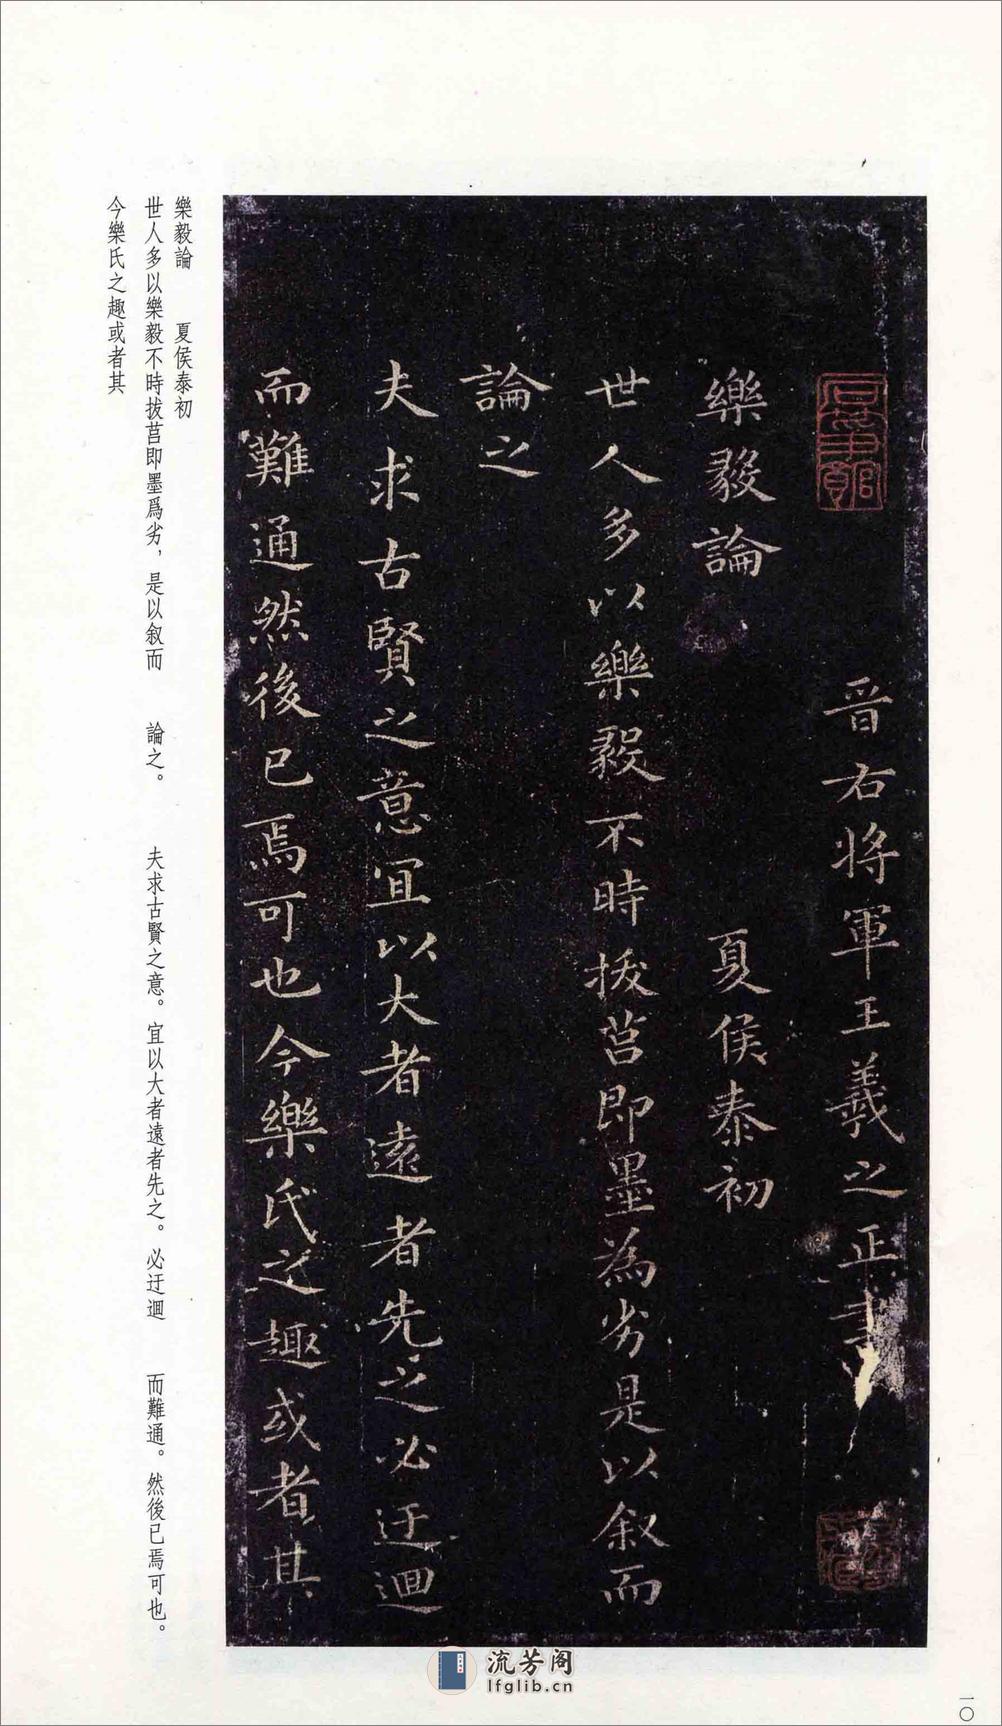 晉右將軍王羲之正書
樂毅論 夏侯泰初
世人多以樂毅不時拔莒即墨為劣是以叙而
論之
夫求古賢之意宜以大者遠者先之必迂迴
而難通然後已焉可也今樂氏之趣或者其
樂毅論 夏侯泰初
世人多以樂毅不時拔莒即墨爲劣，是以叙而 論之。 夫求古賢之意。宜以大者遠者先之。必迂迴 而難通。然後已焉可也。
今樂氏之趣或者其
流芳阁
lfglib.cn
一〇